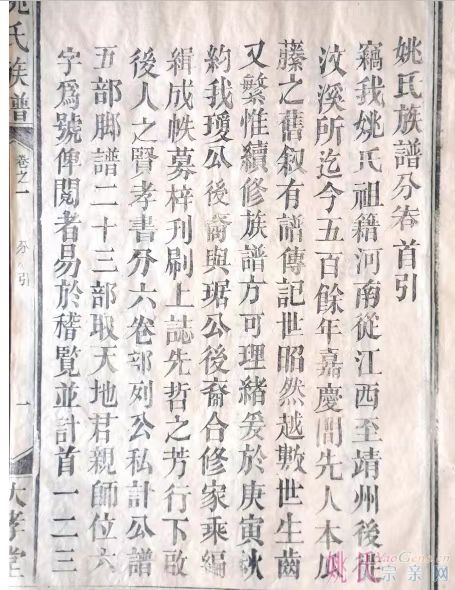 姚氏族譜分卷首引
竊我姚氏祖籍河南從江西至靖州後徙
汶溪所迄今五百餘年嘉慶間先人本瓜
藤之舊敘有譜傳記世昭然越數世生齒
又繁惟續修族譜方可理緒爰於庚寅秋
約我璦公後裔與琚公後裔合修家乘編
緝成帙募梓刊刷上誌先哲之芳行下啟
後人之賢孝書分六卷部列公私計公譜
五部脚譜二十三部取天地君親師位六
字爲號俾閱者易於稽覽並計首一二三
姚氏族譜 卷之一 分引 一 大孝堂
姚氏
YaoGene.cn
大宗亲网